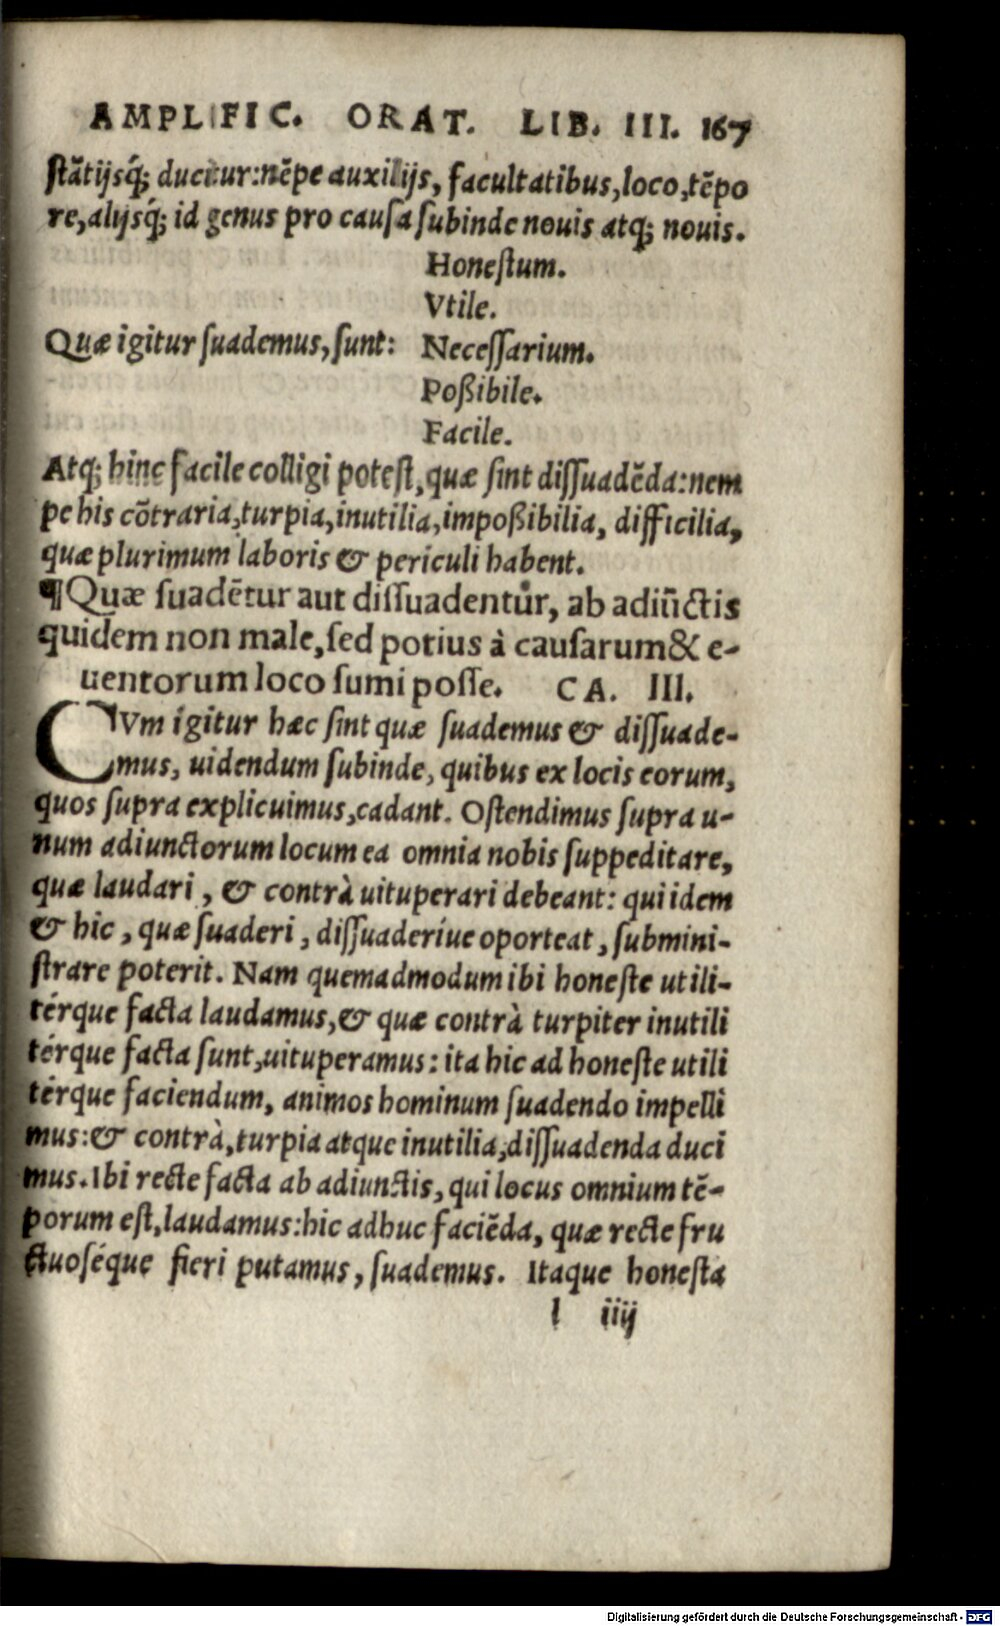 AMPLIFIC. ORAT. LIB. III. 167
stãtijsq́; ducitur:nẽpe auxilijs, facultatibus,loco,tẽpo
re,alijsq́; id genus pro causa subinde nouis atq; nouis.
Honestum.
Vtile.
Quæ igitur suademus,sunt: Necessarium.
Poßibile.
Facile.
Atq; hinc facile colligi potest,quæ sint dissuadẽda:nem
pe his cõtraria,turpia,inutilia,impoßibilia, difficilia,
quæ plurimum laboris & periculi habent.
¶Quæ suadẽtur aut dissuadentur, ab adiũctis
quidem non male,sed potius à causarum& e-
uentorum loco sumi posse. CA. III.
CVm igitur hæc sint quæ suademus & dissuade-
mus, uidendum subinde, quibus ex locis eorum,
quos supra explicuimus,cadant. Ostendimus supra u-
num adiunctorum locum ea omnia nobis suppeditare,
quæ laudari , & contrà uituperari debeant: qui idem
& hic , quæ suaderi , dissuaderíue oporteat , submini-
strare poterit. Nam quemadmodum ibi honeste utili-
térque facta laudamus,& quæ contrà turpiter inutili
térque facta sunt,uituperamus: ita hic ad honeste utili
térque faciendum, animos hominum suadendo impelli
mus:& contrà,turpia atque inutilia,dissuadenda duci
mus. Ibi recte facta ab adiunctis, qui locus omnium tẽ-
porum est,laudamus:hic adhuc faciẽda, quæ recte fru
ctuoséque fieri putamus, suademus. Itaque honesta
l iiij
Digitalisierung gefördert durch die Deutsche Forschungsgemeinschaft - DFG